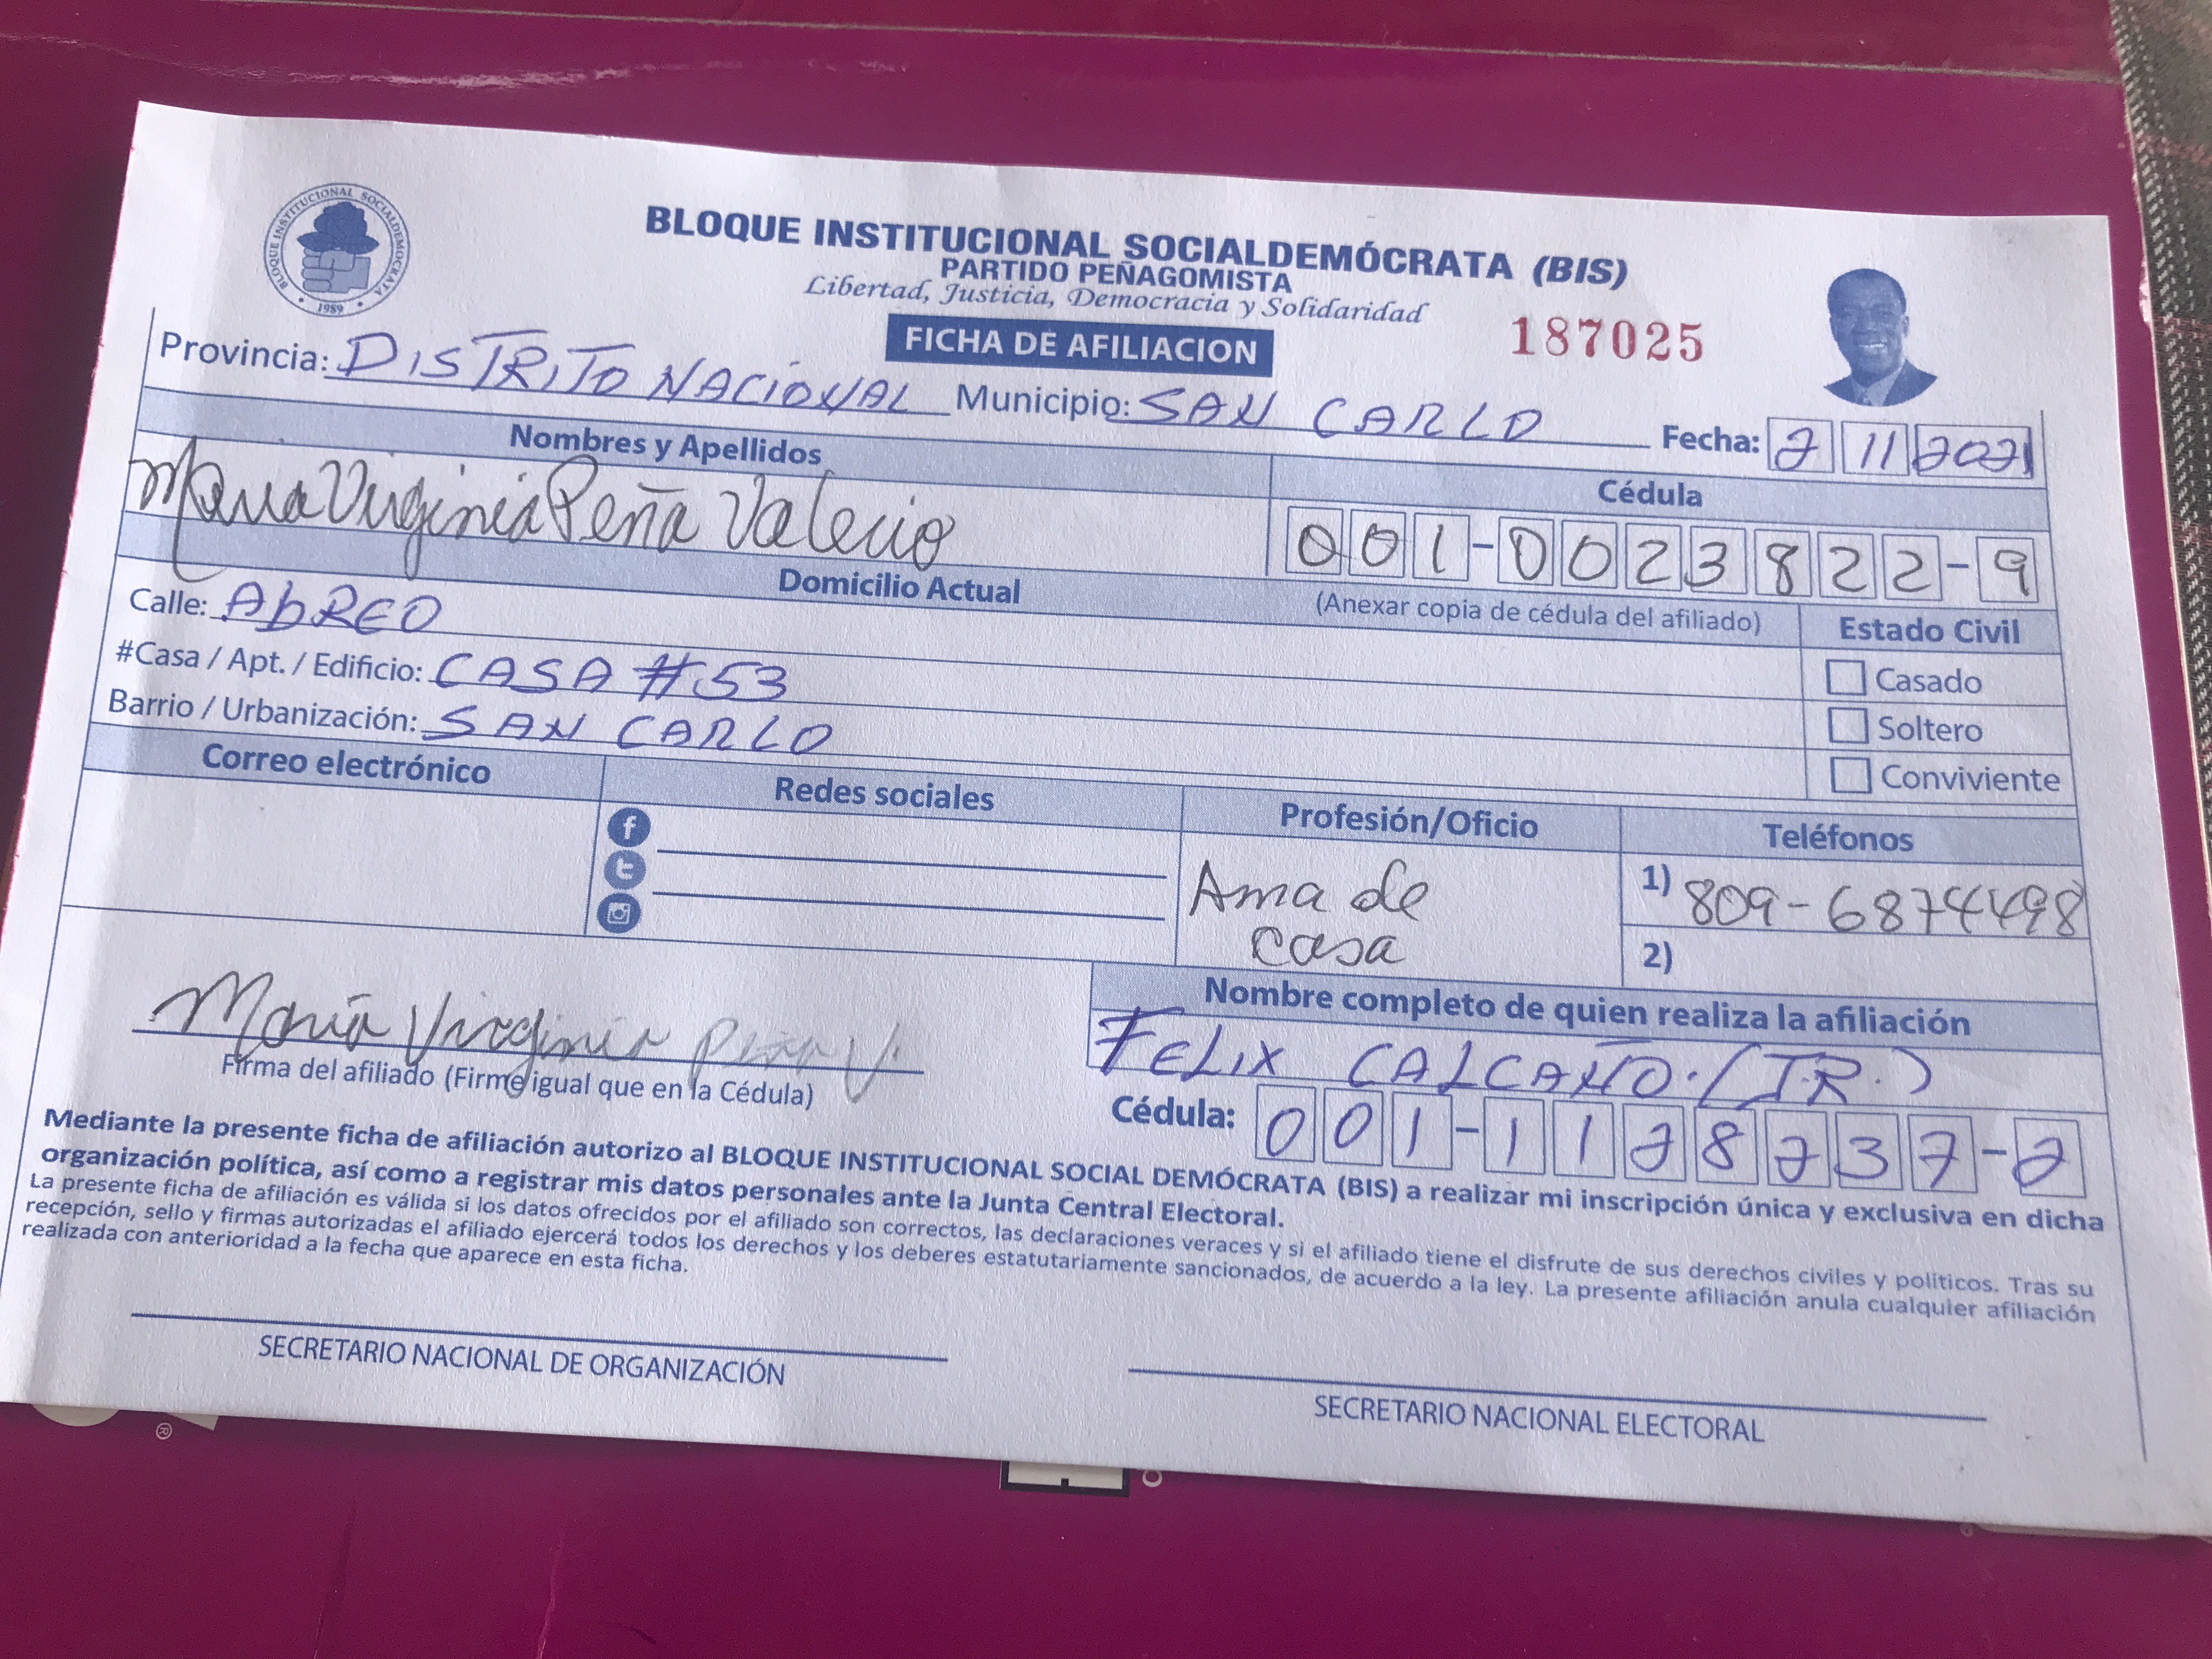 BLOQUE INSTITUCIONAL SOCIALDEMOCRATA
1989
BLOQUE INSTITUCIONAL SOCIALDEMÓCRATA (BIS)
PARTIDO PEÑAGOMISTA
Libertad, Justicia, Democracia y Solidaridad
FICHA DE AFILIACION
187025
Provincia: DISTRITO NACIONAL Municipio: SAN CARLO Fecha: 2 11 2021
Nombres y Apellidos
Cédula
Maria Virginia Peña Valerio
001-0023822-9
Domicilio Actual
(Anexar copia de cédula del afiliado)
Estado Civil
Calle: AbREO
#Casa / Apt. / Edificio: CASA #53
Barrio / Urbanización: SAN CARLO
Casado
Soltero
Conviviente
Correo electrónico
Redes sociales
Profesión/Oficio
Teléfonos
Ama de
casa
1) 809-6874498
2)
María Virginia Peña V.
Firma del afiliado (Firme igual que en la Cédula)
Nombre completo de quien realiza la afiliación
FELIX CALCAÑO. (J.R.)
Cédula: 001-1128237-2
Mediante la presente ficha de afiliación autorizo al BLOQUE INSTITUCIONAL SOCIAL DEMÓCRATA (BIS) a realizar mi inscripción única y exclusiva en dicha
organización política, así como a registrar mis datos personales ante la Junta Central Electoral.
La presente ficha de afiliación es válida si los datos ofrecidos por el afiliado son correctos, las declaraciones veraces y si el afiliado tiene el disfrute de sus derechos civiles y políticos. Tras su
recepción, sello y firmas autorizadas el afiliado ejercerá todos los derechos y los deberes estatutariamente sancionados, de acuerdo a la ley. La presente afiliación anula cualquier afiliación
realizada con anterioridad a la fecha que aparece en esta ficha.
SECRETARIO NACIONAL DE ORGANIZACIÓN
SECRETARIO NACIONAL ELECTORAL